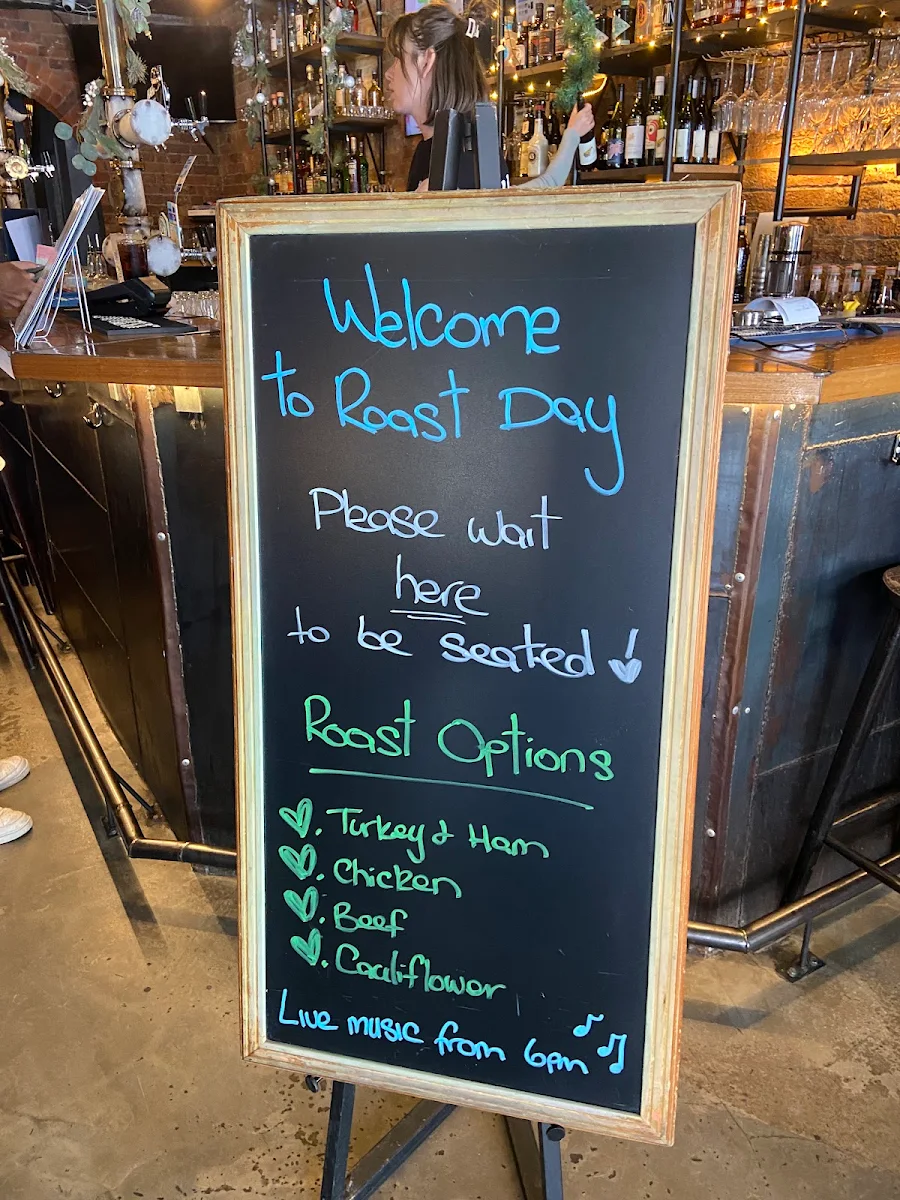 Welcome
to Roast Day
Please wait
here
to be seated
Roast Options
Turkey & Ham
Chicken
Beef
Cauliflower
Live music from 6pm